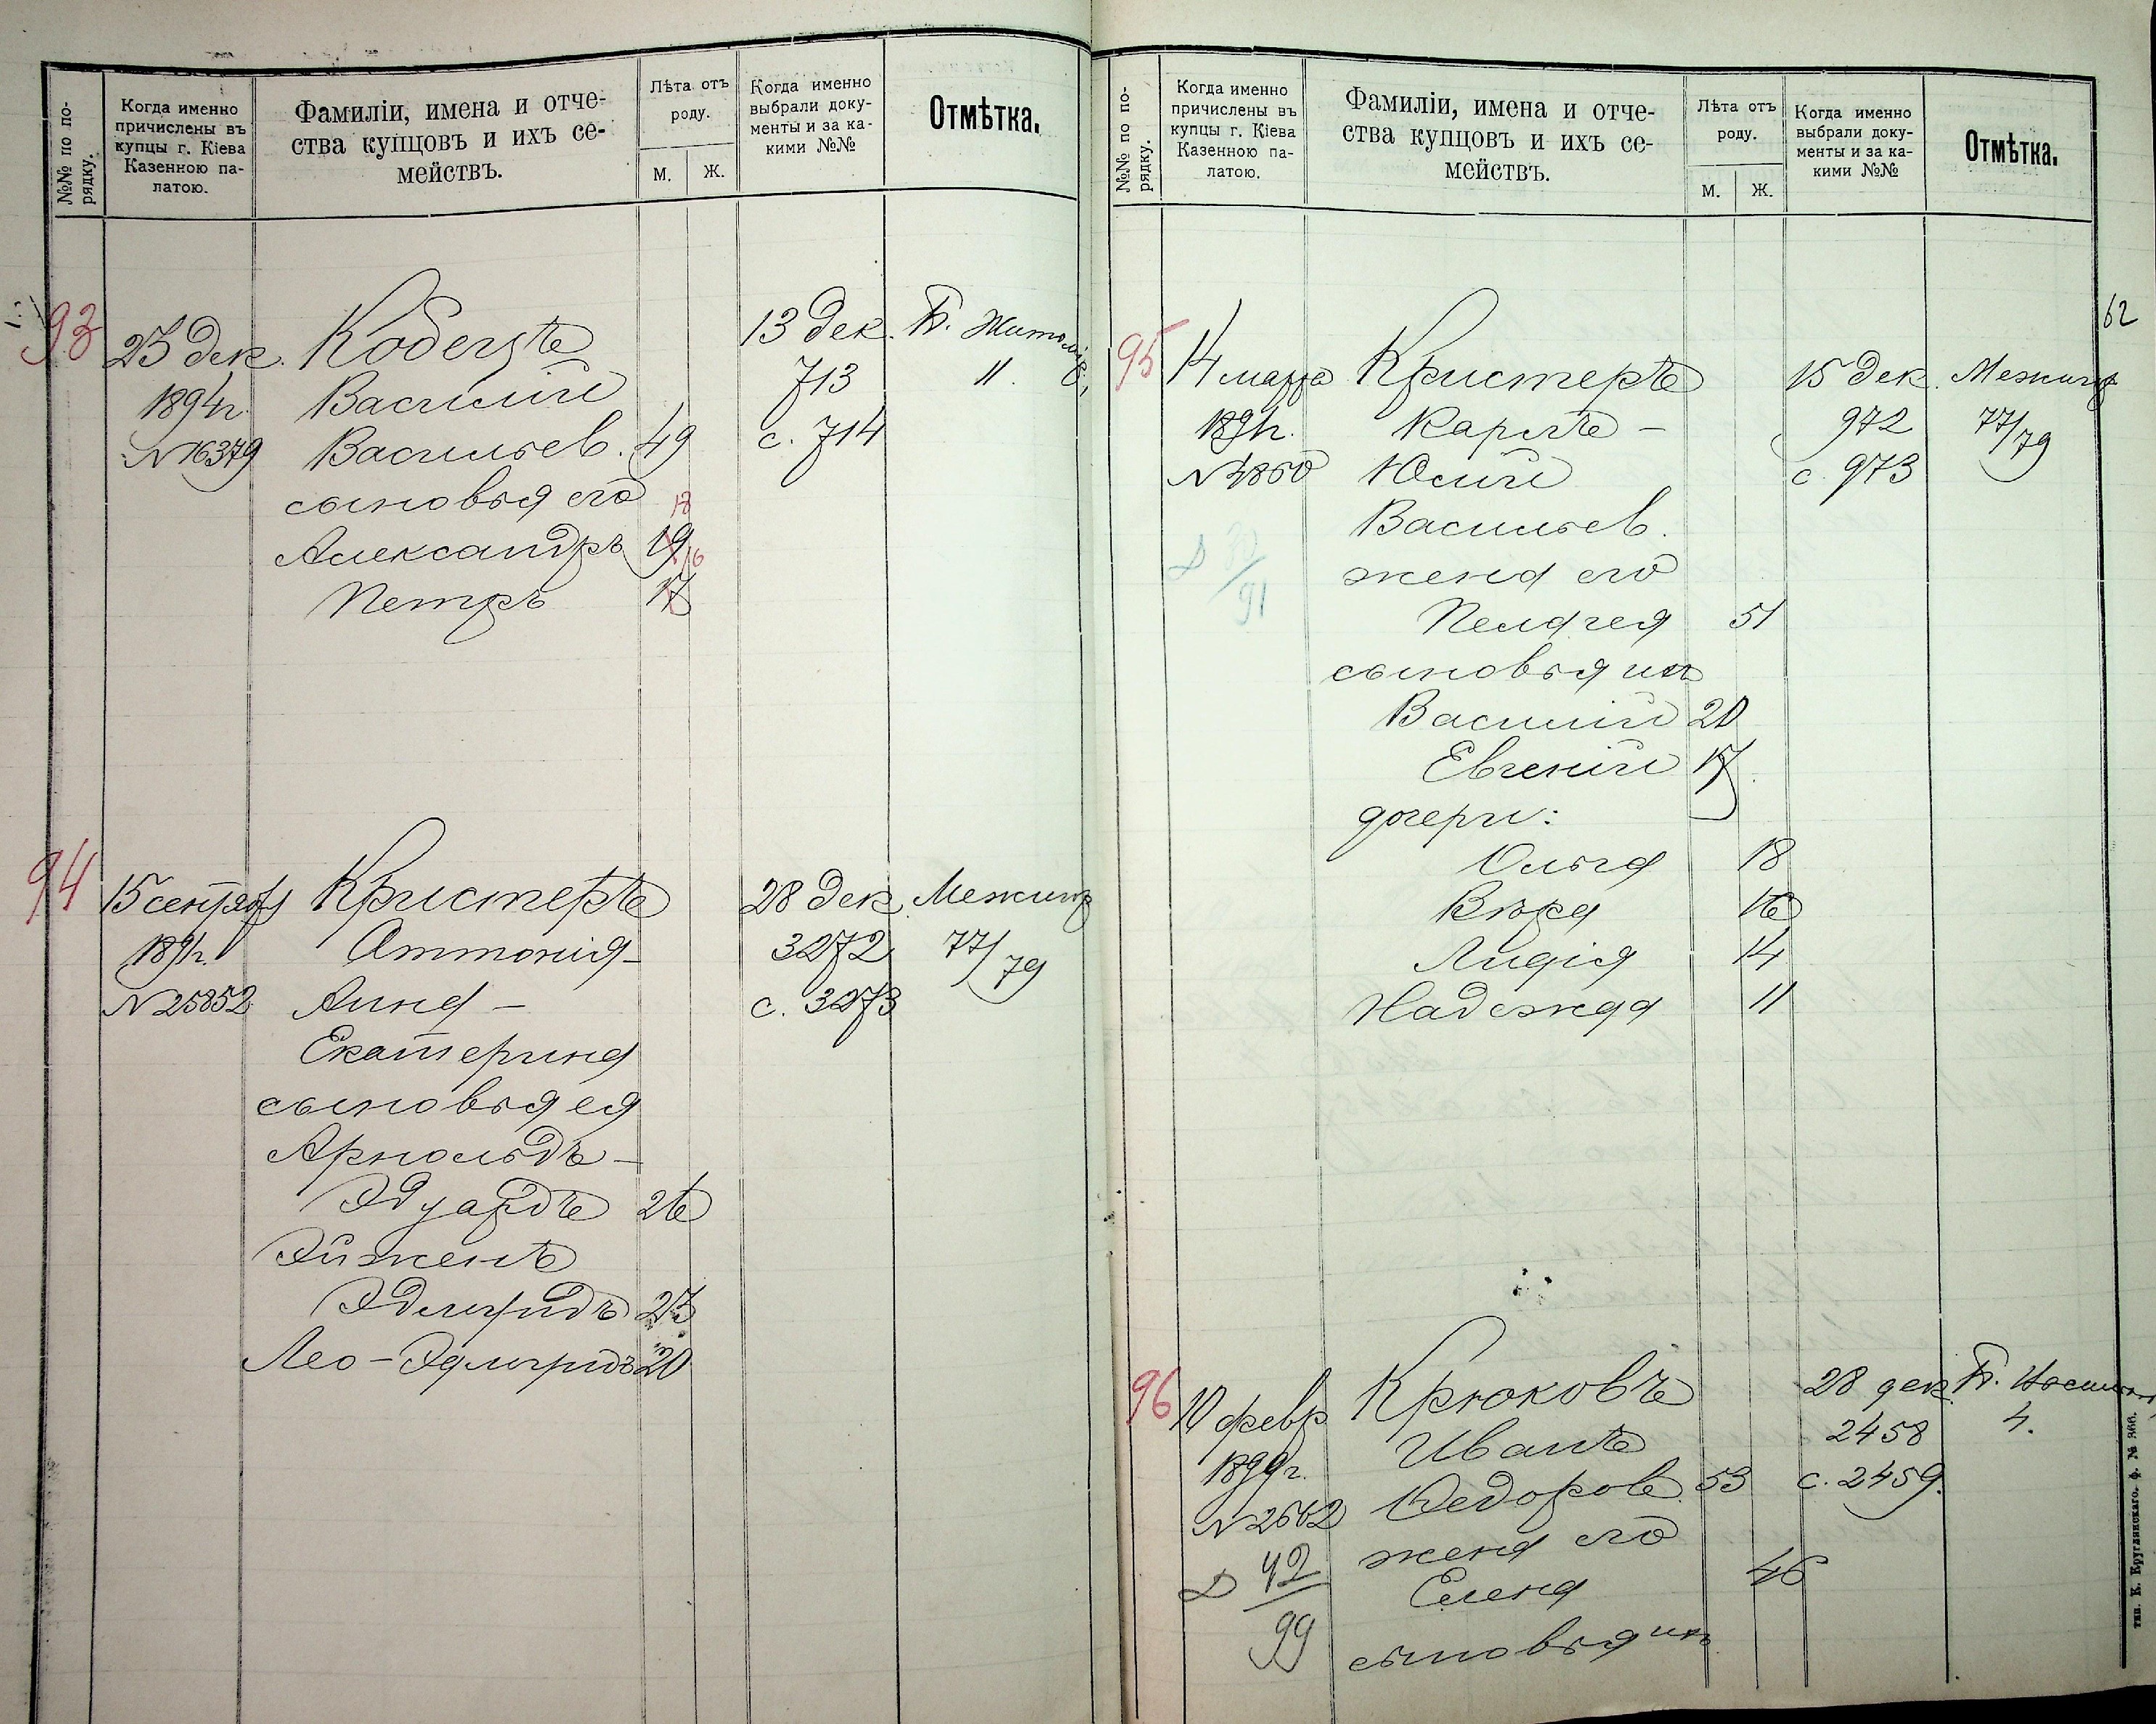 №№ по по-
рядку.
Когда именно
причислены въ
купцы г. Кіева
Казенною па-
латою.
Фамиліи, имена и отче-
ства купцовъ и ихъ се-
мействъ.
Лѣта отъ
роду.
М.
Ж.
Когда именно
выбрали доку-
менты и за ка-
кими №№
Отмѣтка.
93
23 дек.
1894 г.
№ 16379
Василій
Васильев. 49
сыновья его
18
Александръ 19
16
Петръ 17
13 дек.
713
с. 714
Б. Житомир.
11.
94
15 сентября
1891 г.
№ 25852
Кристеръ
Антонія-
Анна -
Екатерина
сыновья ея
Арнольдъ -
Эдуардъ 26
Эйженъ
Эдмундъ 23
Лео - 20
28 дек.
3272
с. 3273
Межигор
77/79
№№ по по-
рядку.
Когда именно
причислены въ
купцы г. Кіева
Казенною па-
латою.
Фамиліи, имена и отче-
ства купцовъ и ихъ се-
мействъ.
Лѣта отъ
роду.
М.
Ж.
Когда именно
выбрали доку-
менты и за ка-
кими №№
Отмѣтка.
62
95
14 марта
1891 г.
№ 4860
91
Кристеръ
Карлъ -
Юлій
Васильев.
жена его
Пелагея 51
сыновья ихъ
Василій 20
Евгеній 17
дочери:
Ольга 18
Вѣра 16
Лидія 14
Надежда 11
15 дек.
972
с. 973
Межигор
77/79
96
10 февр.
1899 г.
№ 2662
Д 42/99
Крюковъ
Иванъ
Федоров. 53
жена его
Елена 46
сыновья ихъ
28 дек.
2458
с. 2459.
4.
тип. К. Круглянскаго. ф. № 366.